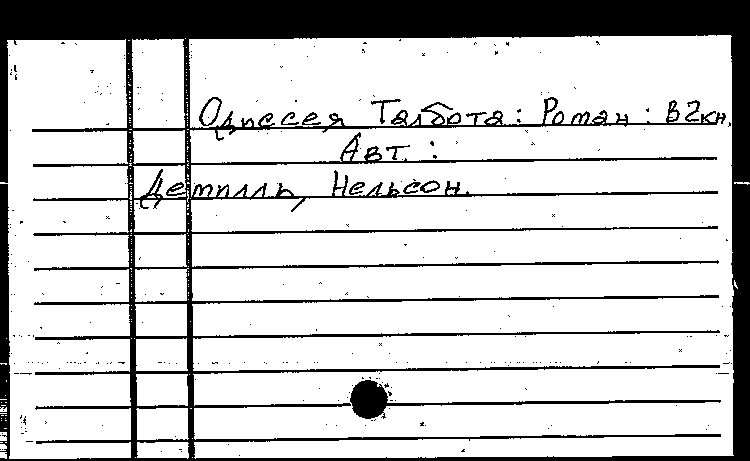 Одиссея Талбота: Роман: В 2кн.
Авт.:
Демилль, Нельсон.